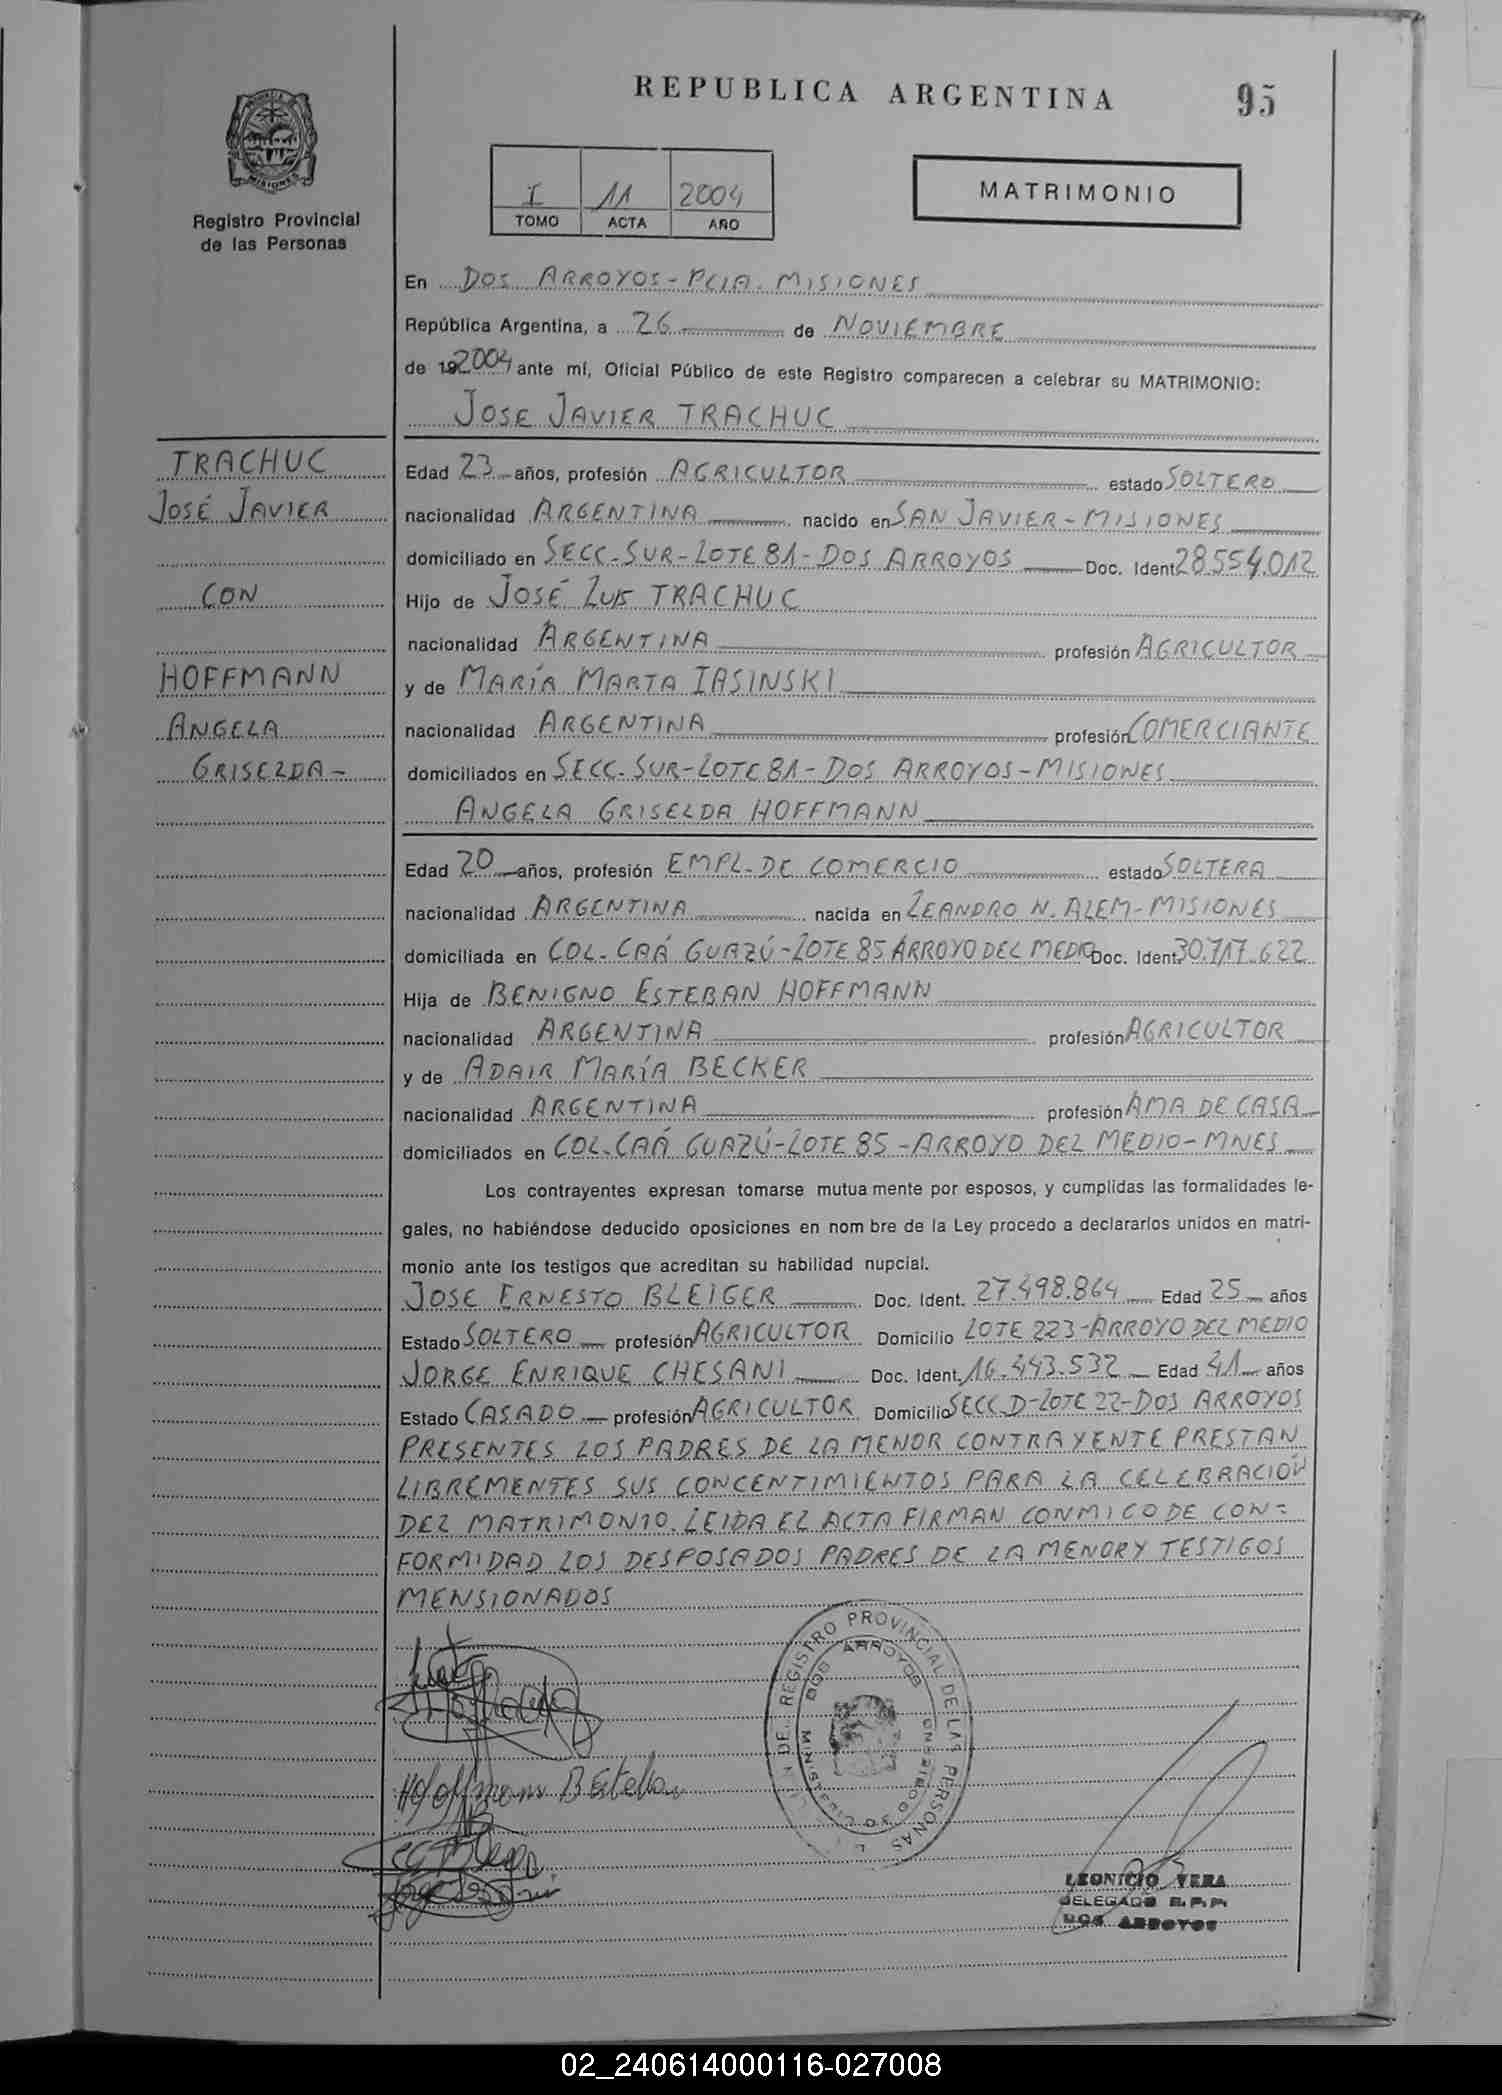 REPUBLICA ARGENTINA
95
MISIONES
Registro Provincial
de las Personas
I 11 2004
TOMO ACTA AÑO
MATRIMONIO
En DOS ARROYOS - PCIA. MISIONES
República Argentina, a 26 de NOVIEMBRE
de 192004 ante mí, Oficial Público de este Registro comparecen a celebrar su MATRIMONIO:
JOSE JAVIER TRACHUC
TRACHUC
JOSÉ JAVIER
CON
HOFFMANN
ANGELA
GRISELDA -
Edad 23 años, profesión AGRICULTOR estado SOLTERO
nacionalidad ARGENTINA nacido en SAN JAVIER - MISIONES
domiciliado en SECC. SUR - LOTE 81 - DOS ARROYOS Doc. Ident 28.554.012
Hijo de JOSÉ LUIS TRACHUC
nacionalidad ARGENTINA profesión AGRICULTOR
y de MARÍA MARTA IASINSKI
nacionalidad ARGENTINA profesión COMERCIANTE
domiciliados en SECC. SUR - LOTE 81 - DOS ARROYOS - MISIONES
ANGELA GRISELDA HOFFMANN
Edad 20 años, profesión EMPL. DE COMERCIO estado SOLTERA
nacionalidad ARGENTINA nacida en LEANDRO N. ALEM - MISIONES
domiciliada en COL. CAÁ GUAZÚ - LOTE 85 ARROYO DEL MEDIO Doc. Ident 30.717.622
Hija de BENIGNO ESTEBAN HOFFMANN
nacionalidad ARGENTINA profesión AGRICULTOR
y de ADAIR MARÍA BECKER
nacionalidad ARGENTINA profesión AMA DE CASA
domiciliados en COL. CAÁ GUAZÚ - LOTE 85 - ARROYO DEL MEDIO - MNES
Los contrayentes expresan tomarse mutua mente por esposos, y cumplidas las formalidades le-
gales, no habiéndose deducido oposiciones en nom bre de la Ley procedo a declararlos unidos en matri-
monio ante los testigos que acreditan su habilidad nupcial.
JOSE ERNESTO BLEIGER Doc. Ident. 27.498.864 Edad 25 años
Estado SOLTERO profesión AGRICULTOR Domicilio LOTE 223 - ARROYO DEL MEDIO
JORGE ENRIQUE CHESANI Doc. Ident. 16.443.532 Edad 41 años
Estado CASADO profesión AGRICULTOR Domicilio SECC. D - LOTE 22 - DOS ARROYOS
PRESENTES LOS PADRES DE LA MENOR CONTRAYENTE PRESTAN
LIBREMENTES SUS CONCENTIMIENTOS PARA LA CELEBRACIÓN
DEL MATRIMONIO. LEIDA EL ACTA FIRMAN CONMIGO DE CON-
FORMIDAD LOS DESPOSADOS PADRES DE LA MENOR Y TESTIGOS
MENSIONADOS
REGISTRO PROVINCIAL DE LAS PERSONAS
DOS ARROYOS
Hoffmann B Esteban
LEONICIO VERA
DELEGADO R.P.P.
DOS ARROYOS
02_240614000116-027008